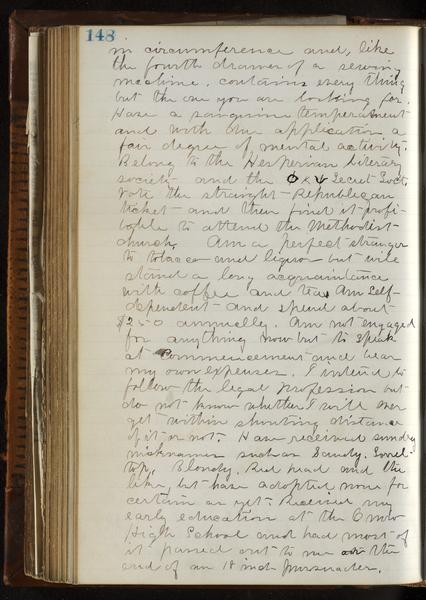 148
in circumference and, like
the fourth drawer of a sewing
machine, contains every thing
but the one you are looking for.
Have a sanguine temperament
and with due application a
fair degree of mental activity.
Belong to the Hesperian literary
society and the Φ Κ Ψ Secret Soct.
Vote the straight Republican
ticket and then find it profi-
table to attend the Methodist
church. Am a perfect stranger
to tobacco and liquor but will
stand a long acquaintance
with coffee and tea. Am Self-
dependent and spend about
$250 annually. Am not engaged
for anything now but to speak
at Commencement and bear
my own expenses. I intend to
follow the legal profession but
do not know whether I will ever
get within shouting distance
of it or not. Have received sundry
nicknames such as Sandy, Sorrel-
top, Blondy, Red head and the
like, but have adopted none for
certain as yet. Received my
early education at the Omro
High School and had most of
it passed out to me on the
end of an 18 inch